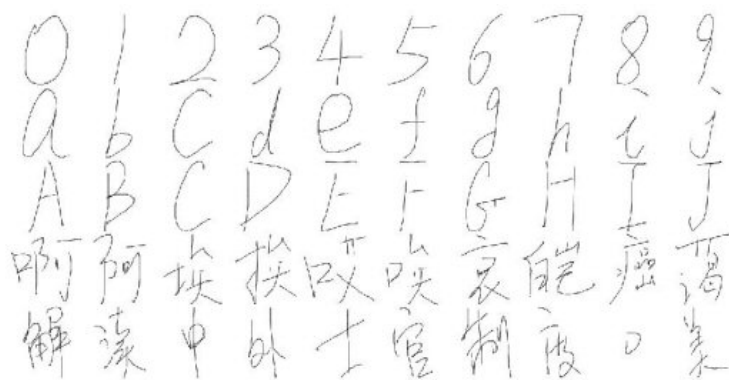 0 1 2 3 4 5 6 7 8 9
a b c d e f g h i j
A B C D E F G H I J
啊 阿 埃 挨 哎 唉 哀 皑 癌 蔼
解 读 中 外 士 官 制 度 。